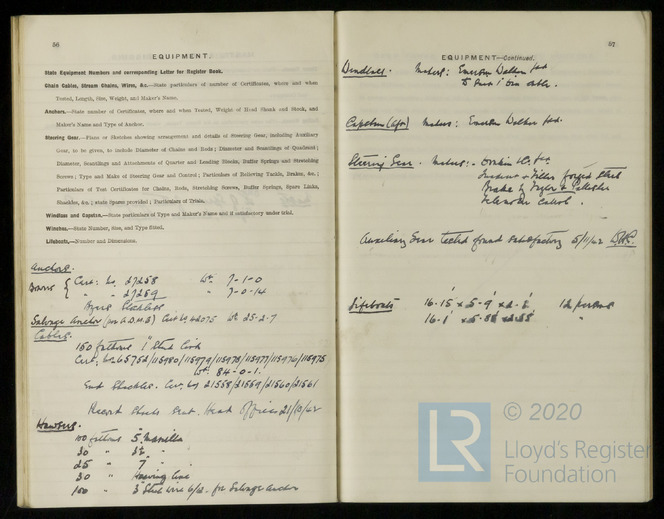 56
EQUIPMENT.
State Equipment Numbers and corresponding Letter for Register Book.
Chain Cables, Stream Chains, Wires, &c.—State particulars of number of Certificates, where and when
Tested, Length, Size, Weight, and Maker's Name.
Anchors.—State number of Certificates, where and when Tested, Weight of Head Shank and Stock, and
Maker's Name and Type of Anchor.
Steering Gear.—Plans or Sketches showing arrangement and details of Steering Gear, including Auxiliary
Gear, to be given, to include Diameter of Chains and Rods; Diameter and Scantlings of Quadrant;
Diameter, Scantlings and Attachments of Quarter and Leading Blocks, Buffer Springs and Stretching
Screws; Type and Make of Steering Gear and Control; Particulars of Relieving Tackle, Brakes, &c.;
Particulars of Test Certificates for Chains, Rods, Stretching Screws, Buffer Springs, Spare Links,
Shackles, &c.; state Spares provided; Particulars of Trials.
Windlass and Capstan.—State particulars of Type and Maker's Name and if satisfactory under trial.
Winches.—State Number, Size, and Type fitted.
Lifeboats.—Number and Dimensions.
Anchors.
Bowers { Cert: No. 27258 Wt. 7-1-0
" " 27259 " 7-0-14
Byers Stockless
Salvage Anchor (for A.D.M.S) Cert No 42075 Wt 25-2-7
Cables.
150 fathoms 1" Stud Link
Cert. No. 65752/115980/115979/115978/115977/115976/115975
Wt. 84-0-1.
End Shackles. Cert. No 21558/21559/21560/21561
Report Sheets Sent Head Office 21/10/42
Hawsers.
100 fathoms 5" Manilla
30 " 3½ " "
25 " 7 " "
30 " Heaving line
100 " 3" Steel wire 6/12 for Salvage Anchor
57
EQUIPMENT—Continued.
Windlass. Makers: Emerson Walker Ltd
Capstan (Aft) Makers: Emerson Walker Ltd.
Steering Gear. Makers:- Donkin & Co Ltd
Quadrant & Tiller forged steel
Telemotor Control.
Auxiliary Gear tested found satisfactory 5/11/42
Lifeboats
© 2020
LR
Lloyd's Register
Foundation